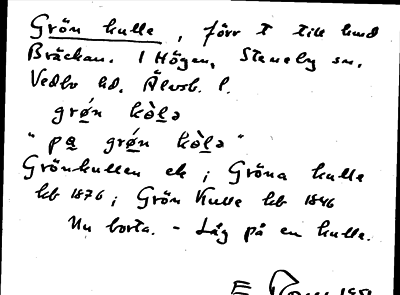 Grön kulle, förr t till hmd
Bräckan. I Högen, Steneby sn.
Vedbo hd. Älvsb. l.
grǿ̱n kò̱lə
"pa̱ grǿ̱n kò̱lə"
Grönkullen ek; Gröna kulle
kb 1876; Grön Kulle kb 1846
Nu borta. - Låg på en kulle.